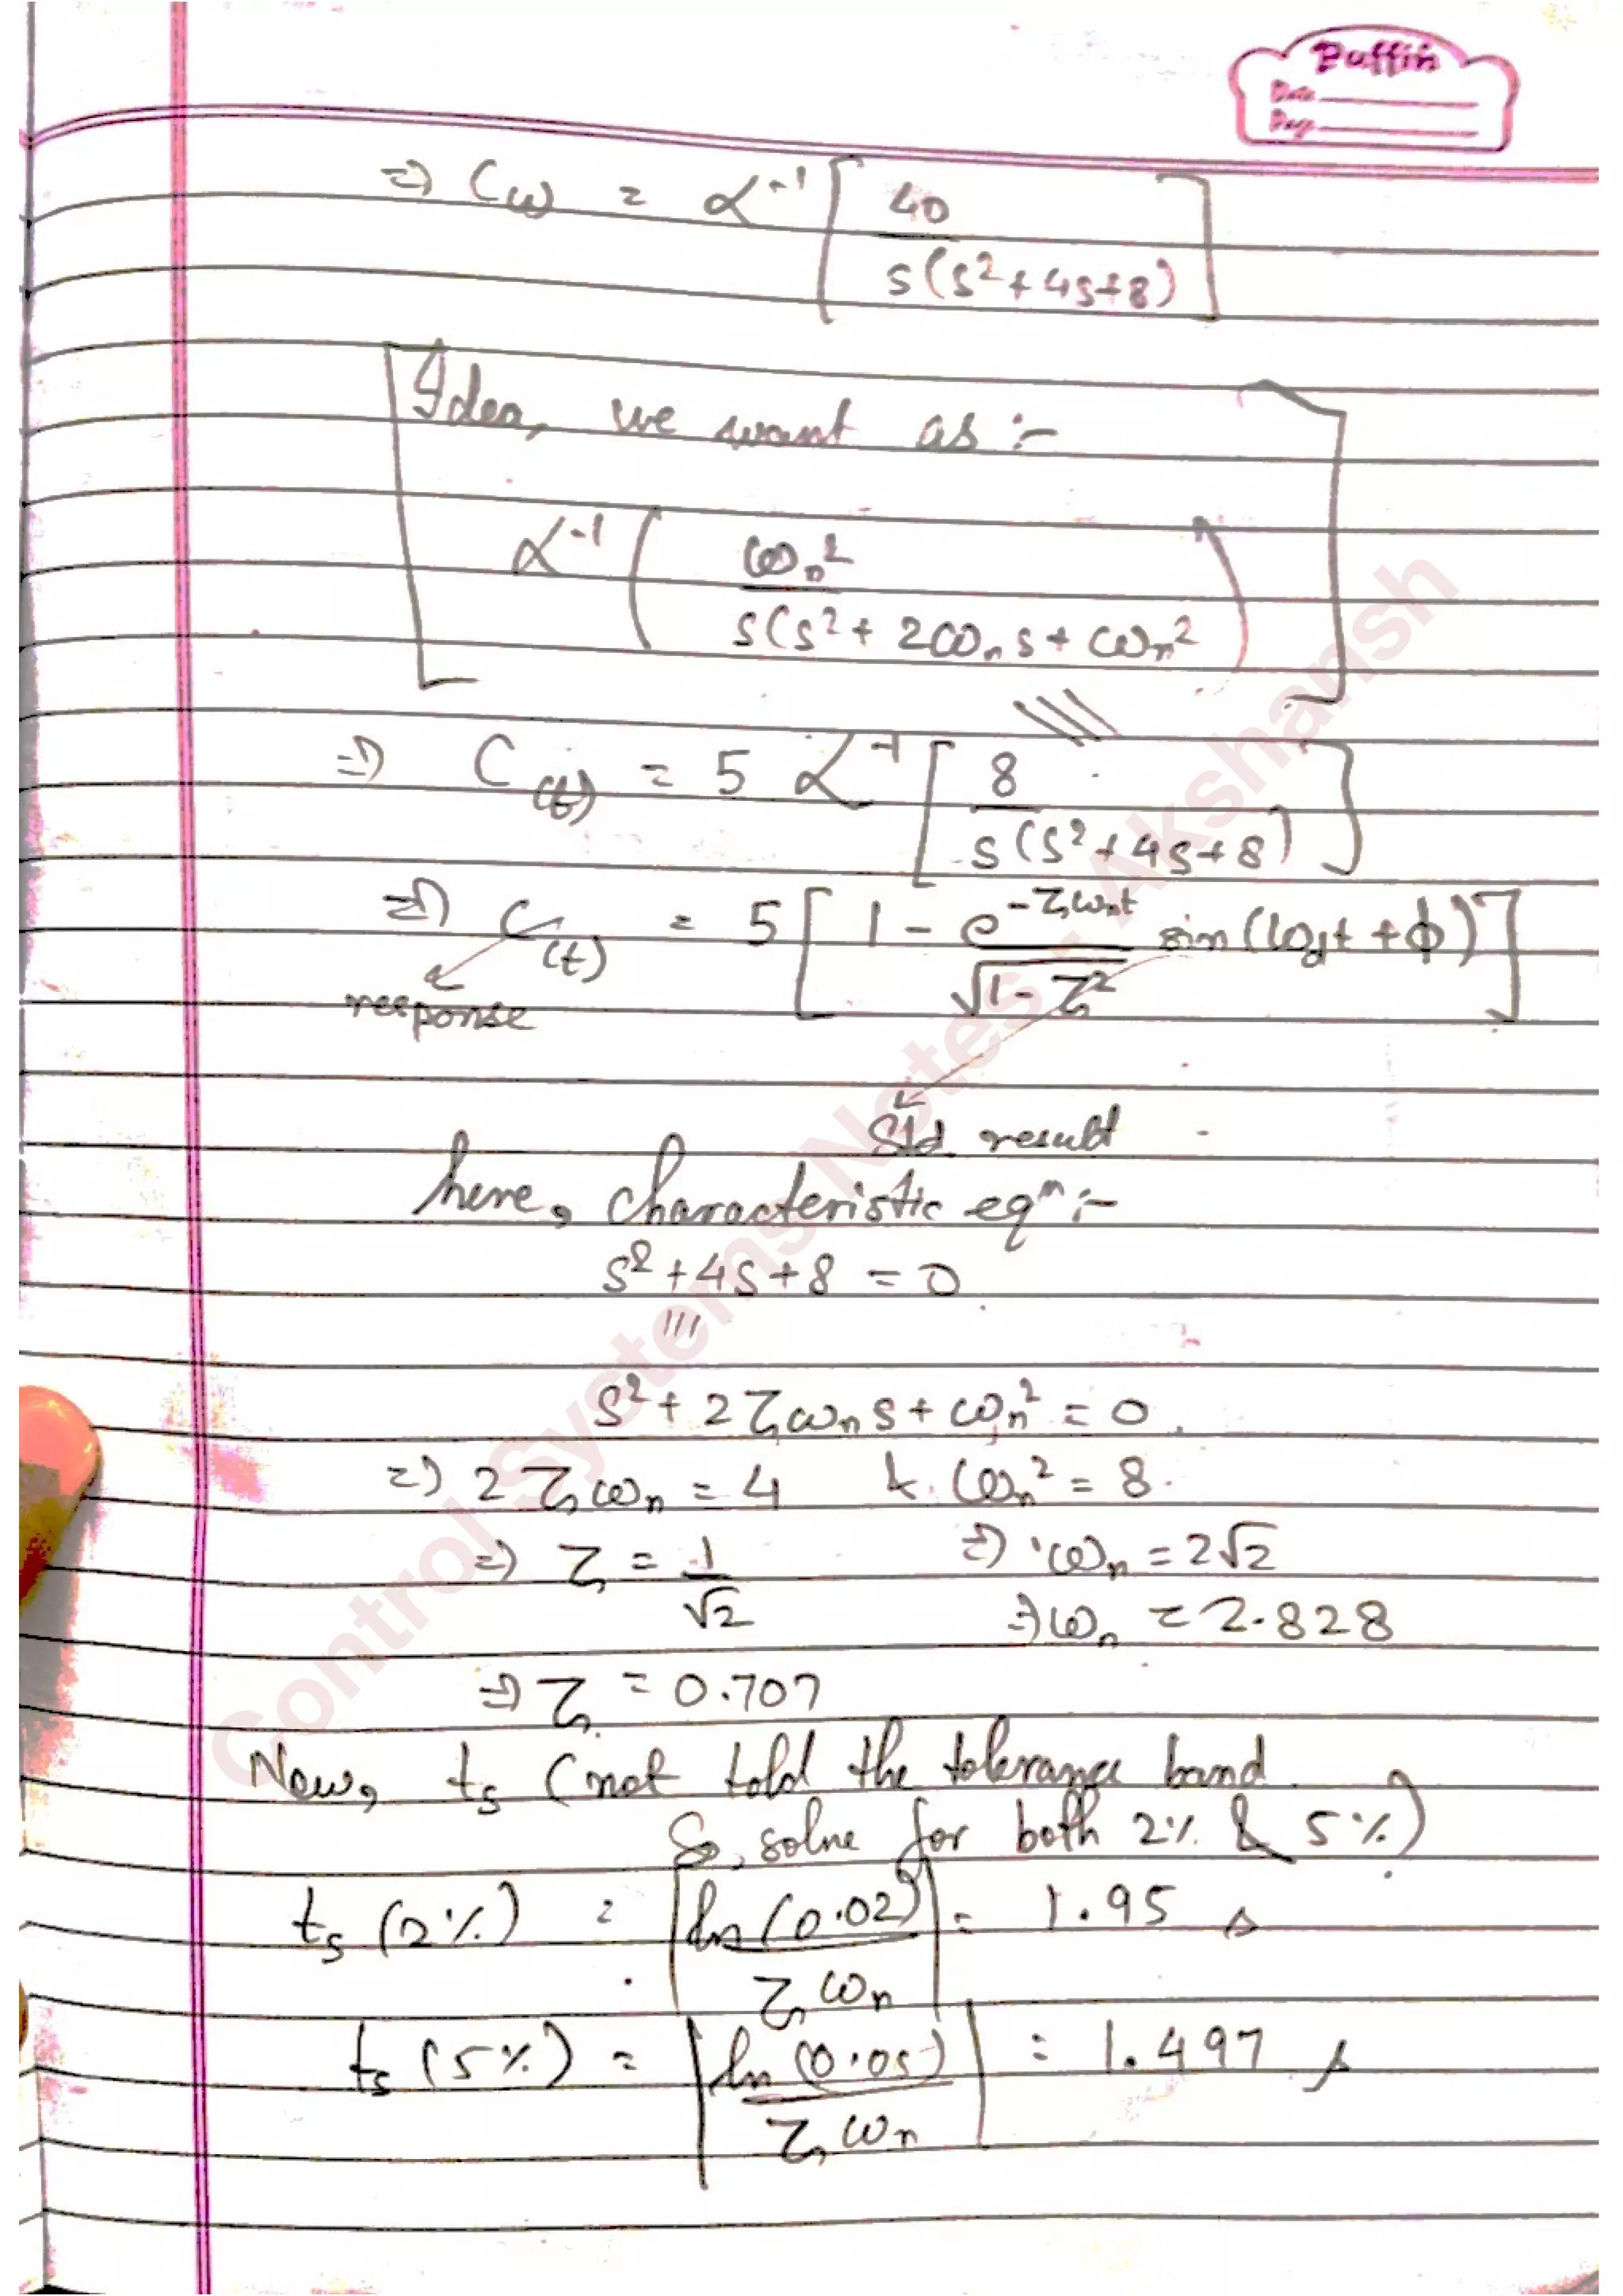 Puffin
Date
Page
⇒ C(t) = ℒ⁻¹ [ 40 / s(s²+4s+8) ]
Idea, we want as :-
ℒ⁻¹ ( ωn² / s(s² + 2ωn s + ωn² )
⇒ C(t) = 5 ℒ⁻¹ [ 8 / s(s²+4s+8) ]
⇒ C(t) = 5 [ 1 - e^(-ζωnt) / √(1-ζ²) sin(ωdt + ϕ) ]
response
Std result
here, characteristic eqⁿ :-
s²+4s+8 = 0
s² + 2ζωn s + ωn² = 0
⇒ 2ζωn = 4 & ωn² = 8
⇒ ζ = 1/√2 ⇒ ωn = 2√2
⇒ ωn = 2.828
⇒ ζ = 0.707
Now, ts (not told the tolerance band
So, solve for both 2% & 5%)
ts (2%) = | ln(0.02) / ζωn | = 1.95 s
ts (5%) = | ln(0.05) / ζωn | = 1.497 s
Control Systems Notes - Akshansh